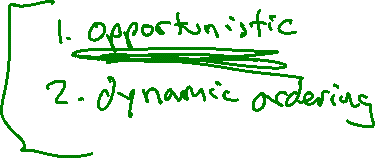 1. opportunistic
2. dynamic ordering